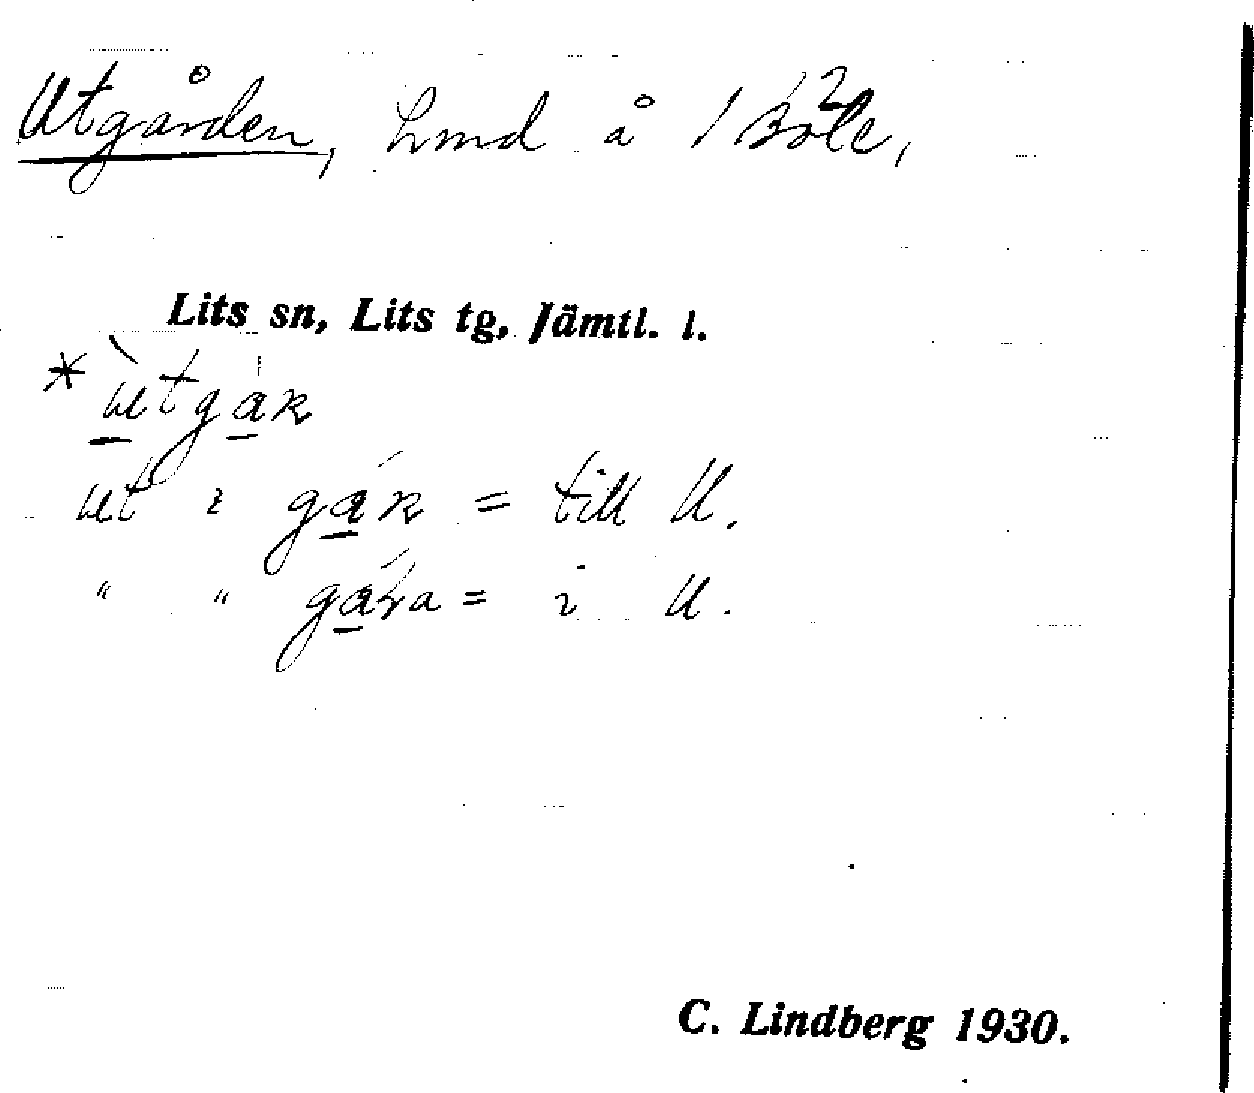 Utgården, Lmd å 1 Böle 2,
Lits sn, Lits tg, Jämtl. l.
* ùtgak
ut i gák = till U.
" " gára = i U.
C. Lindberg 1930.